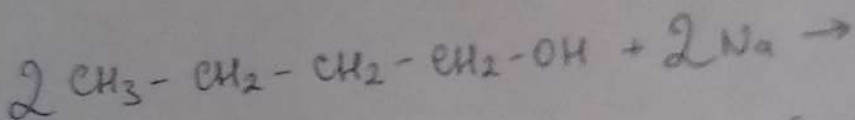 2 CH₃ - CH₂ - CH₂ - CH₂ - OH + 2 Na →